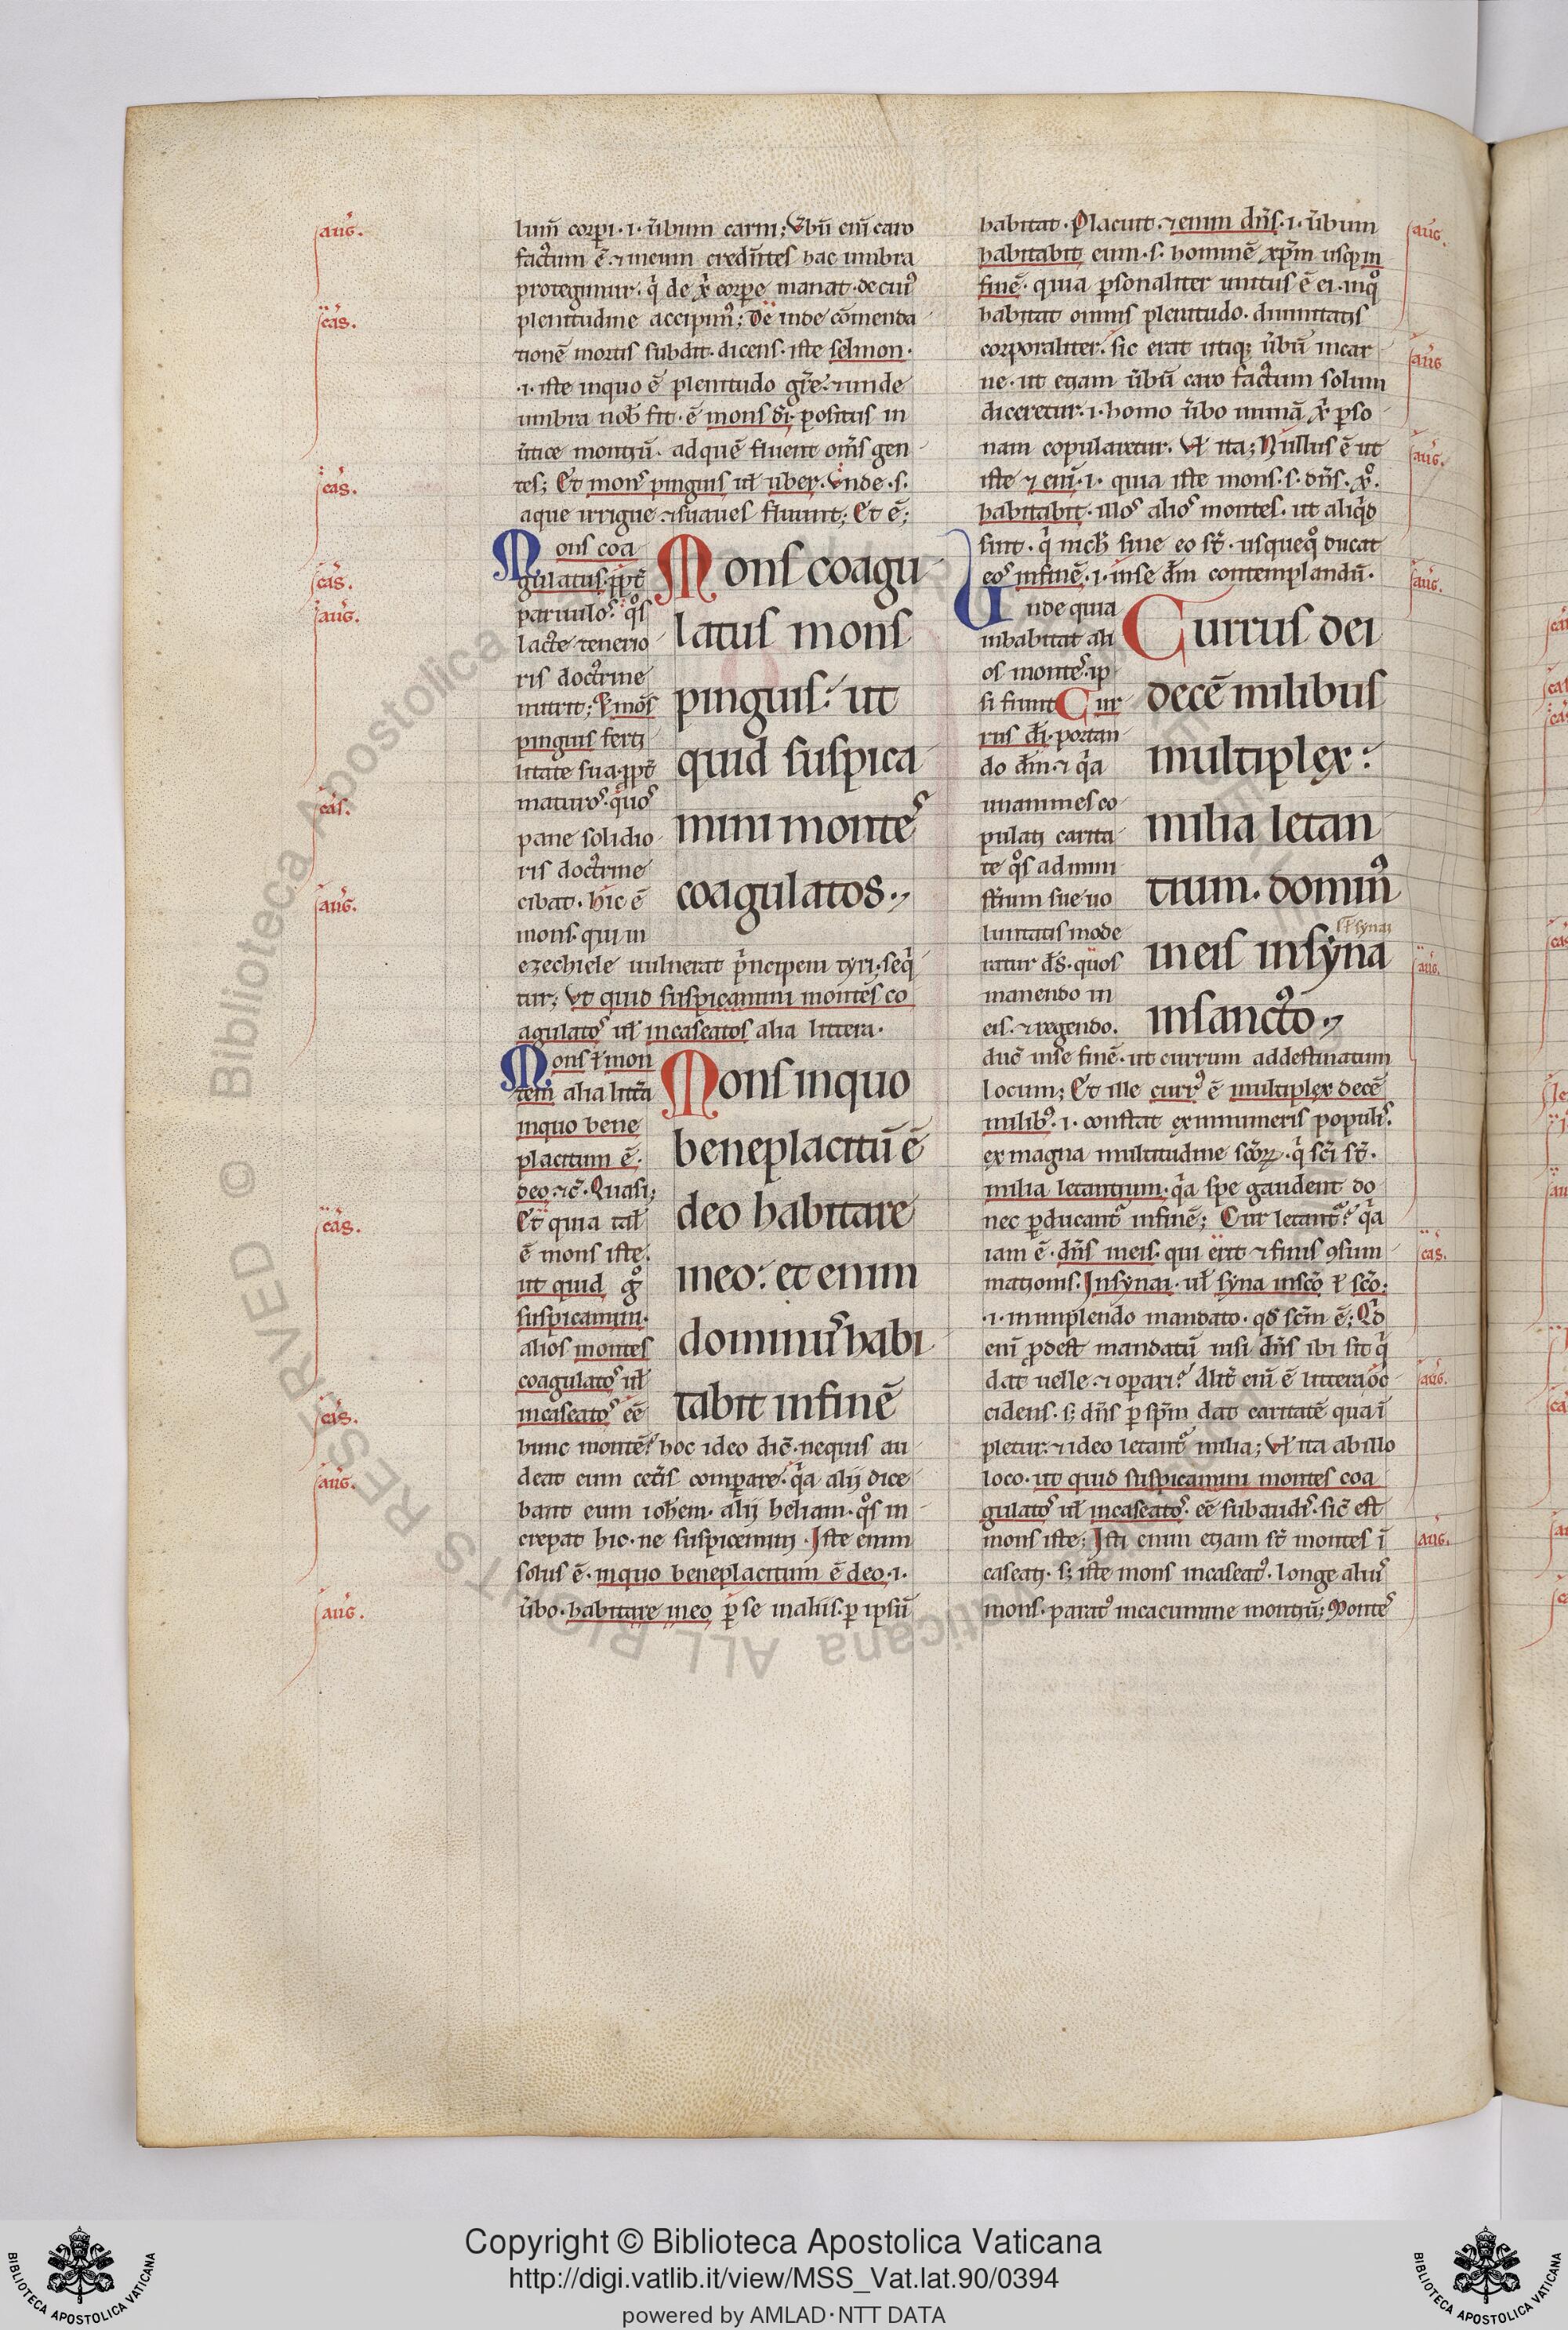 lum̄ corpi·i·ūbum carni; Vbū eni caro
factum ē·⁊ meum credn̄tes hac umbra
protegimur·q̄ de xp̄i corpe manat·de cui᾽
plenitudine accipim᾽; De inde cōmenda
tionē mortis subdit·dicens·iste selmon·
·i·iste inquo ē plenitudo gr̄e·⁊ unde
umbra nob̄ fit·ē mons di·positus in
u̓tice montiū·adquē fluent om̄s gen
tes; Et mons pinguis ul̄ uber·Vnde·s·
aque irrigue ⁊ suaues fluunt; Et ē;
Mons coa
gulatus·ppt̄
paruulos·qos
lacte tenerio
ris doctrine
nutrit; ⁊ mōs
pinguis ferti
litate sua·ppt̄
maturos·quos
pane solidio
ris doctrine
cibat·hic ē
mons·qui in
ezechiele uulnerat pͥncipem tyri·seqͥ
tur; Vt quid suspicamini montes co
agulatos ul̄ incaseatos alia littera·
Mons coagu
latus mons
pinguis: ut
quid suspica
mini montes
coagulatos·,
Mons ł mon
tem alia litt̄a
inquo bene
placitum ē·
deo ⁊c̄·Quasi;
Et quia tal̄
ē mons iste·
ut quid gͦ
suspicamini·
alios montes
coagulatos ul̄
incaseatos eē
hunc montē? hoc ideo dic̄·nequis au
deat eum cet̄is comparare·qͥa alij dice
bant eum ioh̄em·alij heliam·qos in
crepat hic·ne suspicemini·Iste enim
solus ē·inquo beneplacitum ē deo·i·
ūbo·habitare ineo p se malius·p ipsū
Mons inquo
beneplacitū ē
deo habitare
ineo: et enim
dominus habi
tabit infinē
habitat·Placuit·⁊ enim dn̄s·i·ūbum
habitabit eum·s·hominē xp̄m usqꝫ in
finē·quia psonaliter unitus ē ei·inqͦ
habitat omnis plenitudo·diuinitatis
corporaliter·sic erat utiqꝫ ūbū incar
ne·ut etiam ūbū caro factum solum
diceretur·i·homo ūbo inunā xp̄i pso
nam copularetur·Vl̄ ita; Nullus ē ut
iste ⁊ eni·i·quia iste mons·s·dn̄s·xͦ·
habitabit·illos alios montes·ut aliqͥd
sint·qͥ nich̄ sine eo st̄·usqueqͦ ducat
eos infinē·i·inse dm̄ contemplandū·
Unde quia
inhabitat ali
os montes·ip
si fiunt Cur
rus di·portan
do dm̄·⁊ qͥa
unanimes co
pulati carita
te qos ad mini
st̄ium sue uo
luntatis mode
ratur ds̄·quos
manendo in
eis·⁊ regendo·
Currus dei
decē milibus
multiplex:
milia letan
tium·domin᾽
ineis insyna
ł synai
insancto·,
duc̄ inse finē·ut currum addestinatum
locum; Et ille curr᾽ ē multiplex decē
milib᾽·i·constat exinnumeris populis·
ex magna multitudine scōꝝ·qͥ sci st̄·
milia letantium·qͥa spe gaudent do
nec pducant᾽ infinē; Cur letant᾽? qͥa
iam ē·dn̄s ineis·qui erit ⁊ finis ꝯsum
mationis·Insynai·ul̄ syna inscō ł scō·
·i·inimplendo mandato·qd̄ scm̄ ē; Qͥd
eni pdest mandatū nisi dn̄s ibi sit qͥ
dat uelle ⁊ operari? Alit̄ eni ē littera oc
cidens·s; dn̄s p sp̄m dat caritatē qua i
pletur·⁊ ideo letant᾽ milia; Vl̄ ita ab illo
loco·ut quid suspicamini montes coa
gulatos ul̄ incaseatos·eē subaudi·sic̄ est
mons iste; Isti enim etiam st̄ montes i
caseati·s; iste mons incaseat᾽·longe alius
mons·parat᾽ incacumine montiū; Montes
aug.
cas.
cas.
cas.
aug.
cas.
aug.
cas.
cas.
aug.
aug.
aug.
aug
aug.
aug.
aug.
cas.
aug.
aug.
© Biblioteca Apostolica Vaticana ALL RIGHTS RESERVED
Copyright © Biblioteca Apostolica Vaticana
http://digi.vatlib.it/view/MSS_Vat.lat.90/0394
powered by AMLAD·NTT DATA
BIBLIOTECA APOSTOLICA VATICANA
BIBLIOTECA APOSTOLICA VATICANA